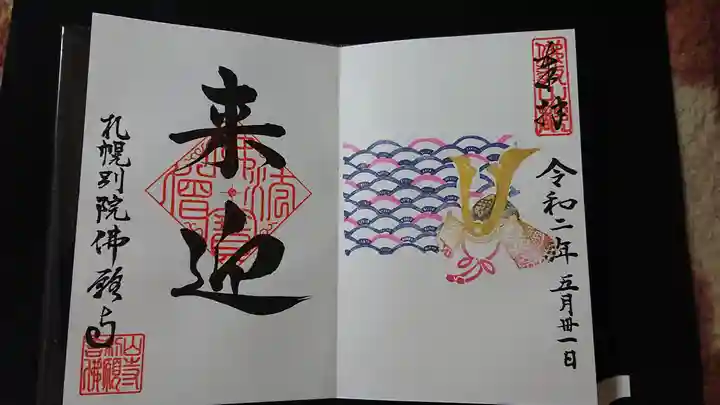 奉拝
令和二年
五月卅一日
来迎
札幌別院佛願寺